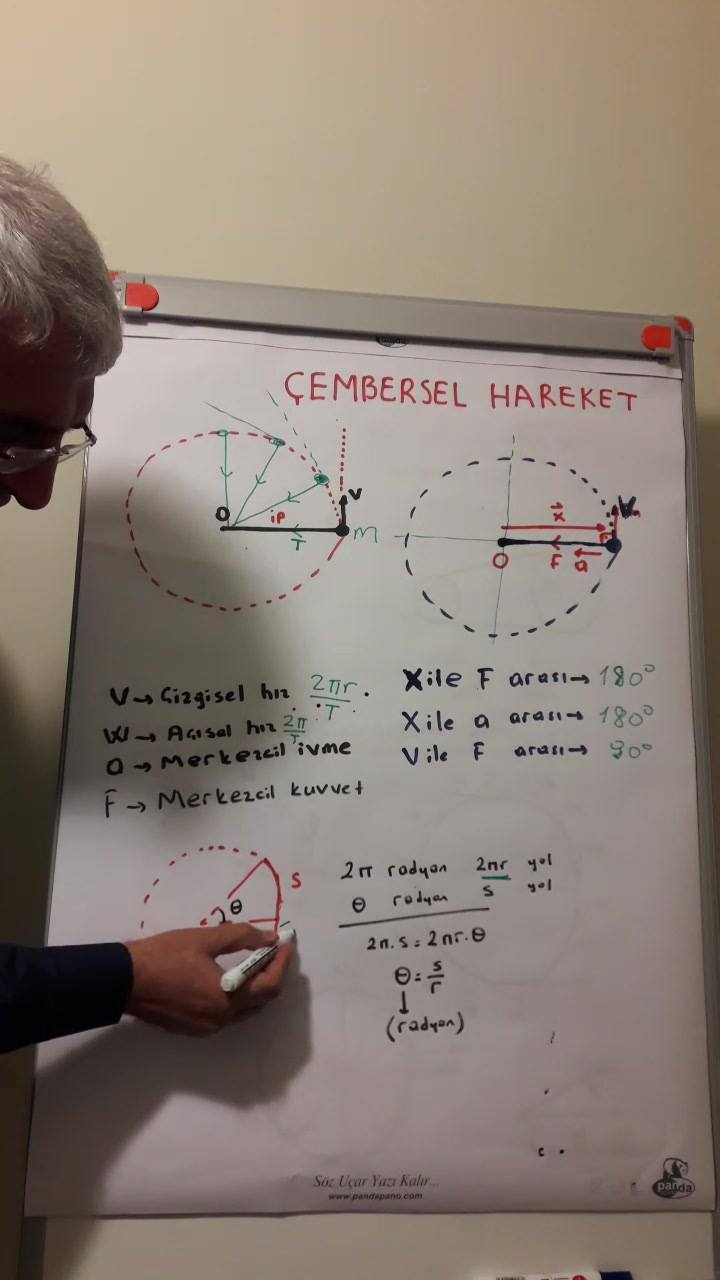 ÇEMBERSEL HAREKET
O ip T V m
x F a O
V → Çizgisel hız 2πr/T
W → Açısal hız 2π/T
a → Merkezcil ivme
F → Merkezcil kuvvet
X ile F arası → 180°
X ile a arası → 180°
V ile F arası → 90°
θ S
2π radyan 2πr yol
θ radyan s yol
2π.s = 2πr.θ
θ = s/r
↓
(radyan)
Söz Uçar Yazı Kalır...
www.pandapano.com
panda